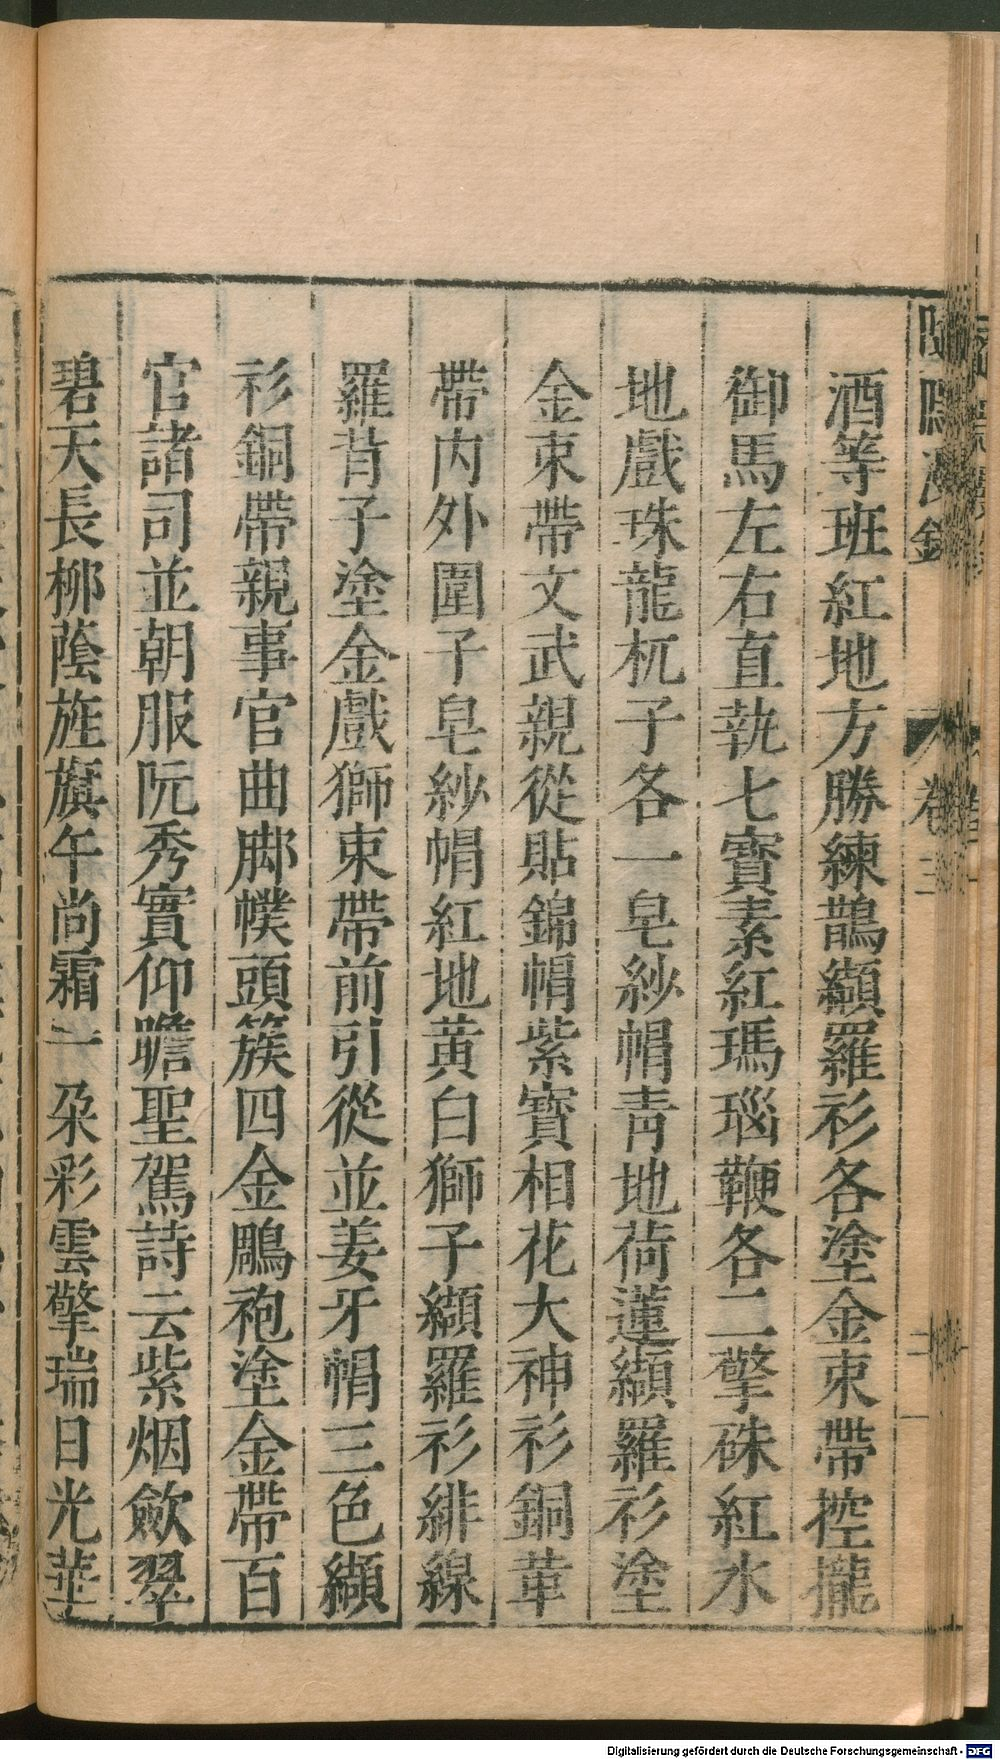 酒等班紅地方勝練鵲纈羅衫各塗金束帶控攏
御馬左右直執七寶素紅瑪瑙鞭各二擎硃紅水
地戲珠龍杌子各一皂紗帽青地荷蓮纈羅衫塗
金束帶文武親從貼錦帽紫寶相花大神衫銅革
帶内外圍子皂紗帽紅地黃白獅子纈羅衫緋線
羅背子塗金戲獅束帶前引從並姜牙帽三色纈
衫銅帶親事官曲脚幞頭簇四金鵰袍塗金帶百
官諸司並朝服阮秀實仰瞻聖駕詩云紫烟歛翠
碧天長栁蔭旌旗午尚霜一朶彩雲擎瑞日光華
卷三
Digitalisierung gefördert durch die Deutsche Forschungsgemeinschaft - DFG